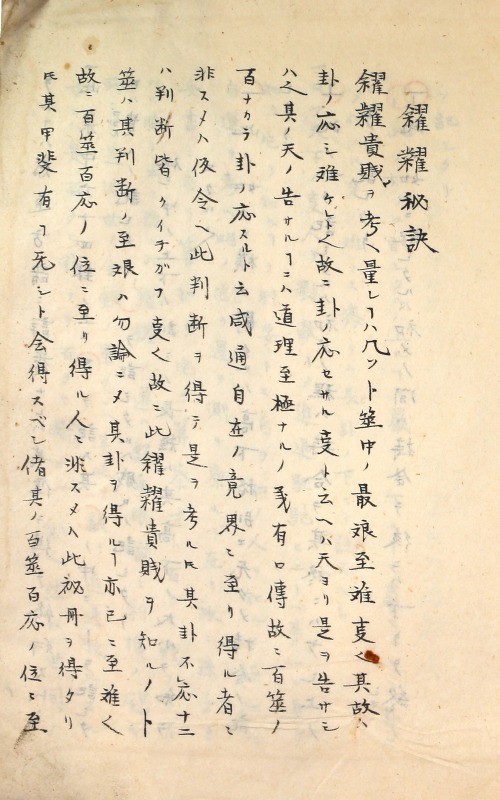 糴糶秘訣
糴糶貴賎ヲ考ヘ量レコハ凡ソト筮中ノ最艱至難ノ事也其故ハ
卦ノ応シ難ケレハ也故ニ卦応セサル事ト云ヘハ天ヨリ是ヲ告サシ
ハ也其ノ天ノ告サルコニハ道理至極ナルノ義有口傳故ニ百筮ノ
百ナカラ卦ノ応スルト云咸通自在ノ竟界ニ至リ得ル者ニ
非スメハ仮令ヘ此判断ヲ得テ是ヲ考ルトモ其卦不応十ニ
ハ判断皆クイチガフ事也故ニ此糴糶貴賎ヲ知ルノト
筮ハ其判断ノ至艱ハ勿論ニメ其卦ノ得ルコ亦已ニ至難也
故ニ百筮百応ノ位ニ至リ得ル人ニ非スメハ此秘冊ヲ得タリ
トモ其甲斐有コ无シト会得スベシ偖其ノ百筮百応ノ位ニ至